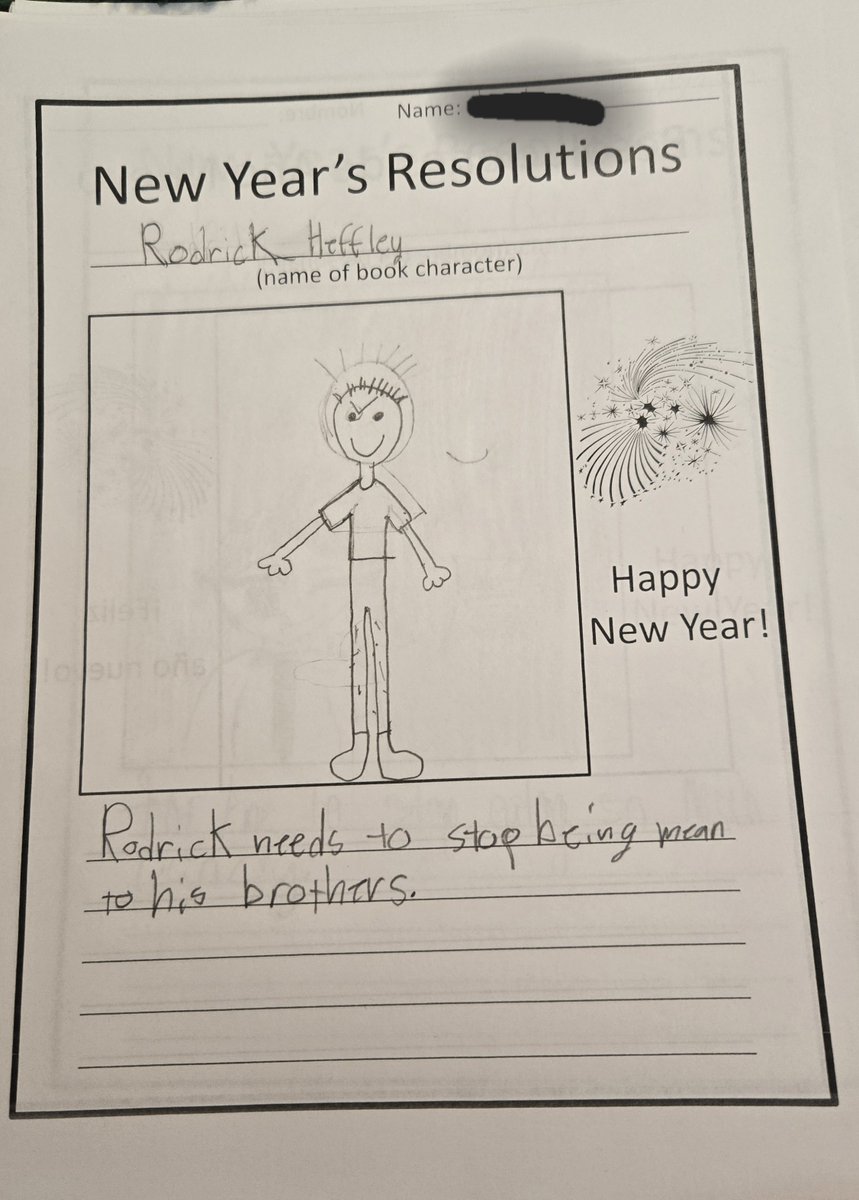 Name:
New Year's Resolutions
Rodrick Heffley
(name of book character)
Happy
New Year!
Rodrick needs to stop being mean
to his brothers.